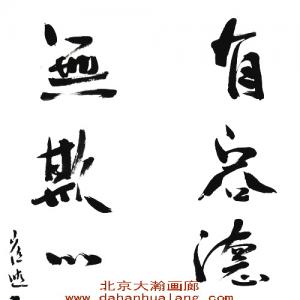 有容德
無欺心
北京大瀚画廊
www.dahanhualang.com